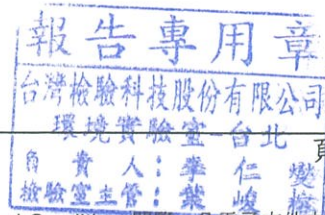 報告專用章
台灣檢驗科技股份有限公司
環境實驗室-台北
負責人:
檢驗室主管:葉
頁